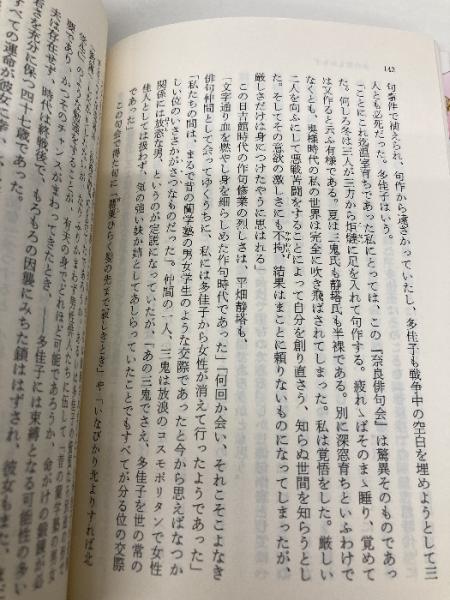 142
句事件で禎えられ、句作から遠ざかっていたし、多佳子も戦争中の空白を埋めようとして三
人とも必死だった。多佳子はいう。
「ことにこれ迄温室育ちであった私にとっては、この『奈良俳句会』は驚異そのものであっ
た。何しろ冬は三人が三方から炬燵に足を入れて句作する。疲れゝばそのまゝ睡り、覚めて
は又作ると云ふ有様である。夏は二鬼氏も静塔氏も半裸である。別に深窓育ちといふわけで
なくとも、奥様時代の私の世界は完全に吹き飛ばされてしまった。私は覚悟をした。厳しい
二人を向ふにして悪戦苦闘をすることによって自分を創り直さう、知らぬ世間を知らうとし
た。そしてその意欲の激しさにも不拘、結果はまことに頼りないものになってしまったが、
厳しさだけは身につけたやうに思はれる」
この日吉館の作句修業の烈しさは、平畑静塔も、
「文字通り血を燃やし身を細らしめた作句時代であった」「何回か会い、それこそこよなき
俳句仲間として会ってゆくうちに、私には多佳子から女性が消えて行ったようであった」
「私たちの間は、まるで昔の蘭学塾の男女学生のような交際であったと今から思えばなつか
しい位のいささかがさつなものだった」。仲間の一人、三鬼は放浪のコスモポリタンで女性
関係には放恣な男、というのが定説になっていたが、「あの三鬼でさえ、多佳子を世の常の
佳人としては扱わず、気の強い妹か姉としてあしらっていたことでもすべてが分る位の交際
であった」
この句会で得た句に「
ひらく髪の先まで寂しきとき」や、「いなびかり北よりすれば北
夫は存在せず、時代は終戦後で、もろもろの因襲にみちた鎖ははずされ、彼女もまた、
若さを充分に保つ四十七歳であった。
すべての運命が彼女に